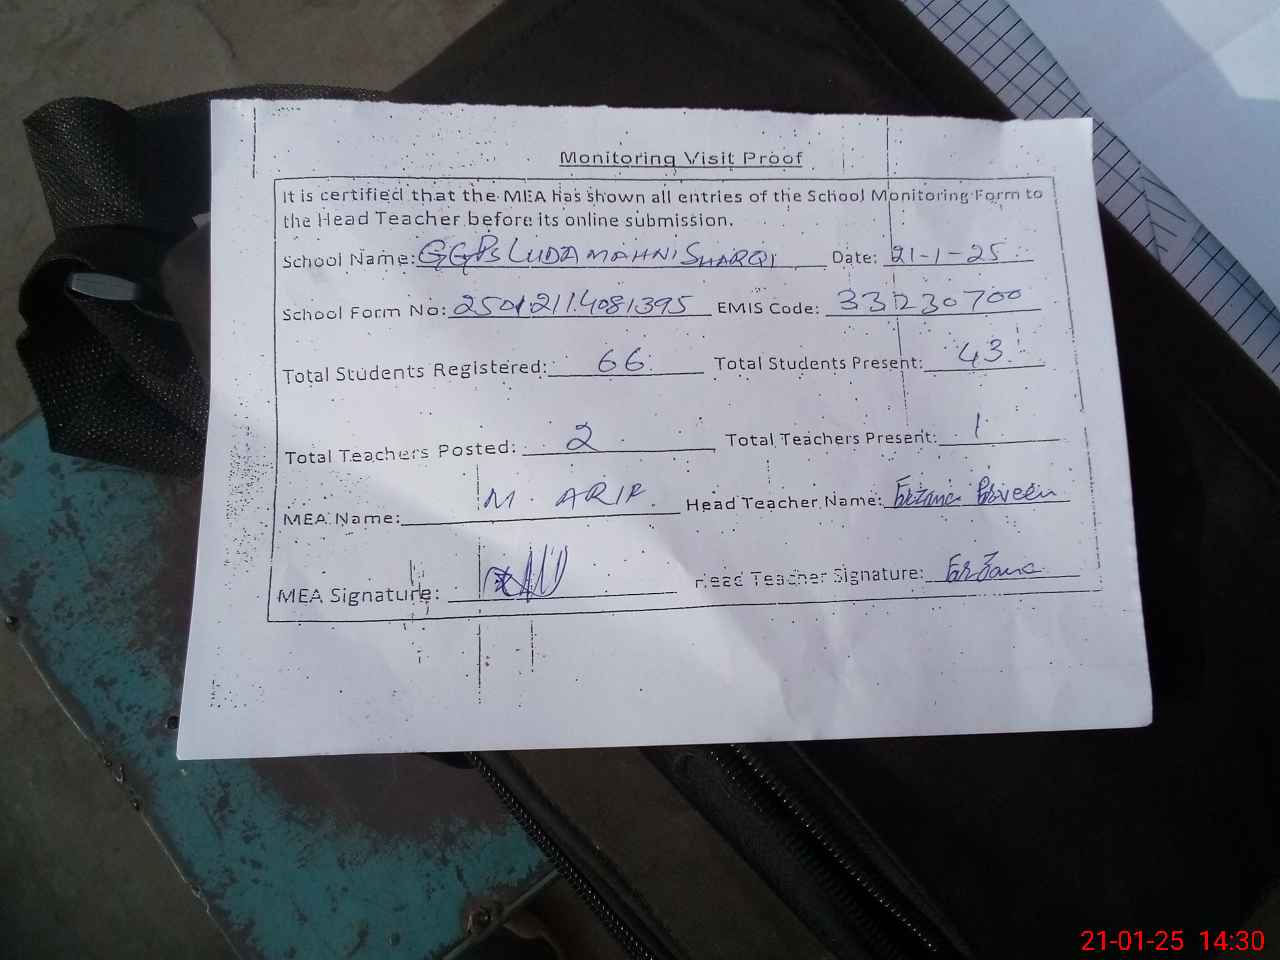 Monitoring Visit Proof
It is certified that the MEA has shown all entries of the School Monitoring Form to
the Head Teacher before its online submission.
School Name: GGPS LUDA MAHNI SHARQI Date: 21-1-25
School Form No: 250121114081395 EMIS Code: 33230700
Total Students Registered: 66 Total Students Present: 43
Total Teachers Posted: 2 Total Teachers Present: 1
MEA Name: M. ARIF Head Teacher Name: Farzana Parveen
MEA Signature: Head Teacher Signature: Farzana
21-01-25 14:30